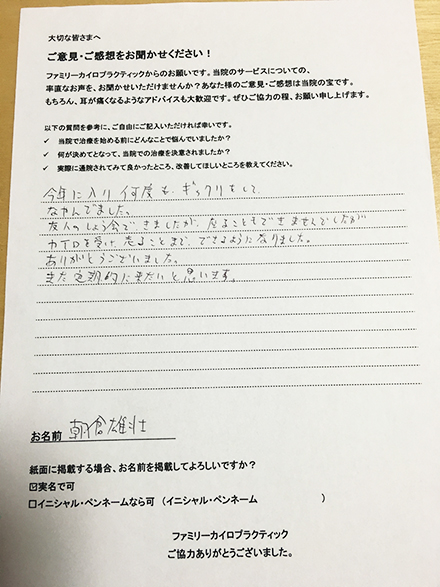 大切な皆さまへ
ご意見・ご感想をお聞かせください！
ファミリーカイロプラクティックからのお願いです。当院のサービスについての、
率直なお声を、お聞かせいただけませんか？あなた様のご意見・ご感想は当院の宝です。
もちろん、耳が痛くなるようなアドバイスも大歓迎です。ぜひご協力の程、お願い申し上げます。
以下の質問を参考に、ご自由にご記入いただければ幸いです。
✓ 当院で治療を始める前にどんなことで悩んでいましたか？
✓ 何が決めてとなって、当院での治療を決意されましたか？
✓ 実際に通院されてみて良かったところ、改善してほしいところを教えてください。
今年に入り何度も、ギックリをして
なやんでました。
友人のしょう会できましたが、座ることもできませんでしたが
カイロを受け、走ることまで、できるようになりました。
ありがとうございました。
また定期的に来たいと思います。
お名前 朝倉雄壮
紙面に掲載する場合、お名前を掲載してよろしいですか？
☑実名で可
□イニシャル・ペンネームなら可 （イニシャル・ペンネーム ）
ファミリーカイロプラクティック
ご協力ありがとうございました。